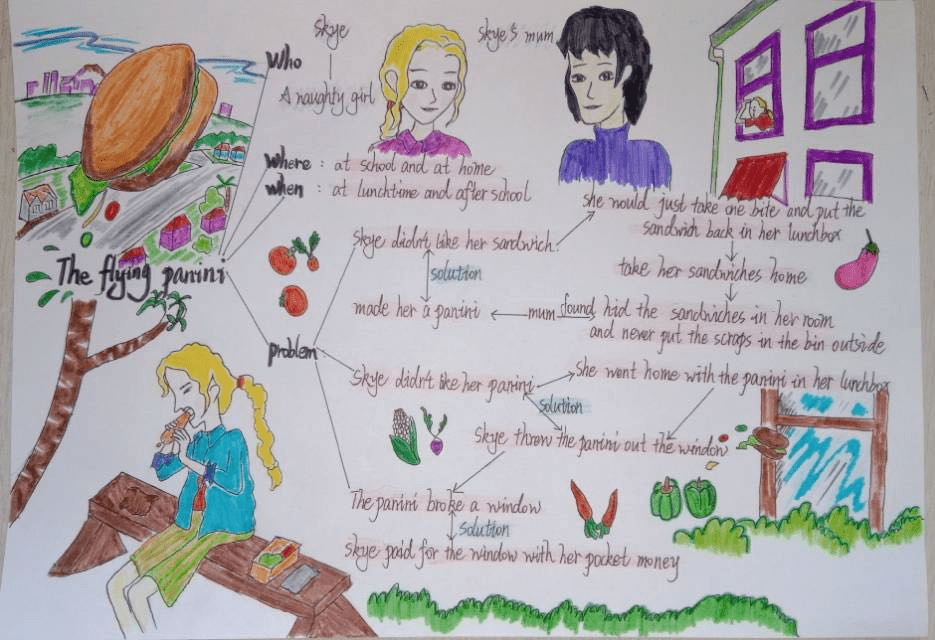 skye
skye's mum
Who
A naughty girl
where : at school and at home
when : at lunchtime and after school
The flying panini
problem
skye didn't like her sandwich.
she would just take one bite and put the
sandwich back in her lunchbox
take her sandwiches home
mum found hid the sandwiches in her room
and never put the scraps in the bin outside
made her a panini
solution
skye didn't like her panini
she went home with the panini in her lunchbox
solution
skye threw the panini out the window
The panini broke a window
solution
skye paid for the window with her pocket money